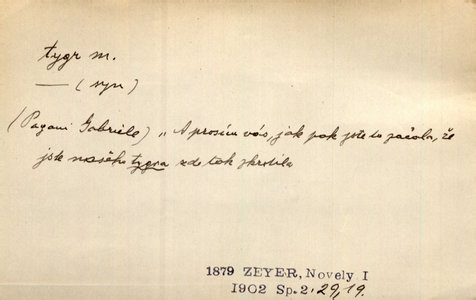 tygr m.
— (     )
(Pagani Gabriele) „A prosím vás, jak pak jste to začala, že
jste našeho tygra     tak zkrotila
1879 ZEYER, Novely I
1902 Sp. 2. 29, 19.